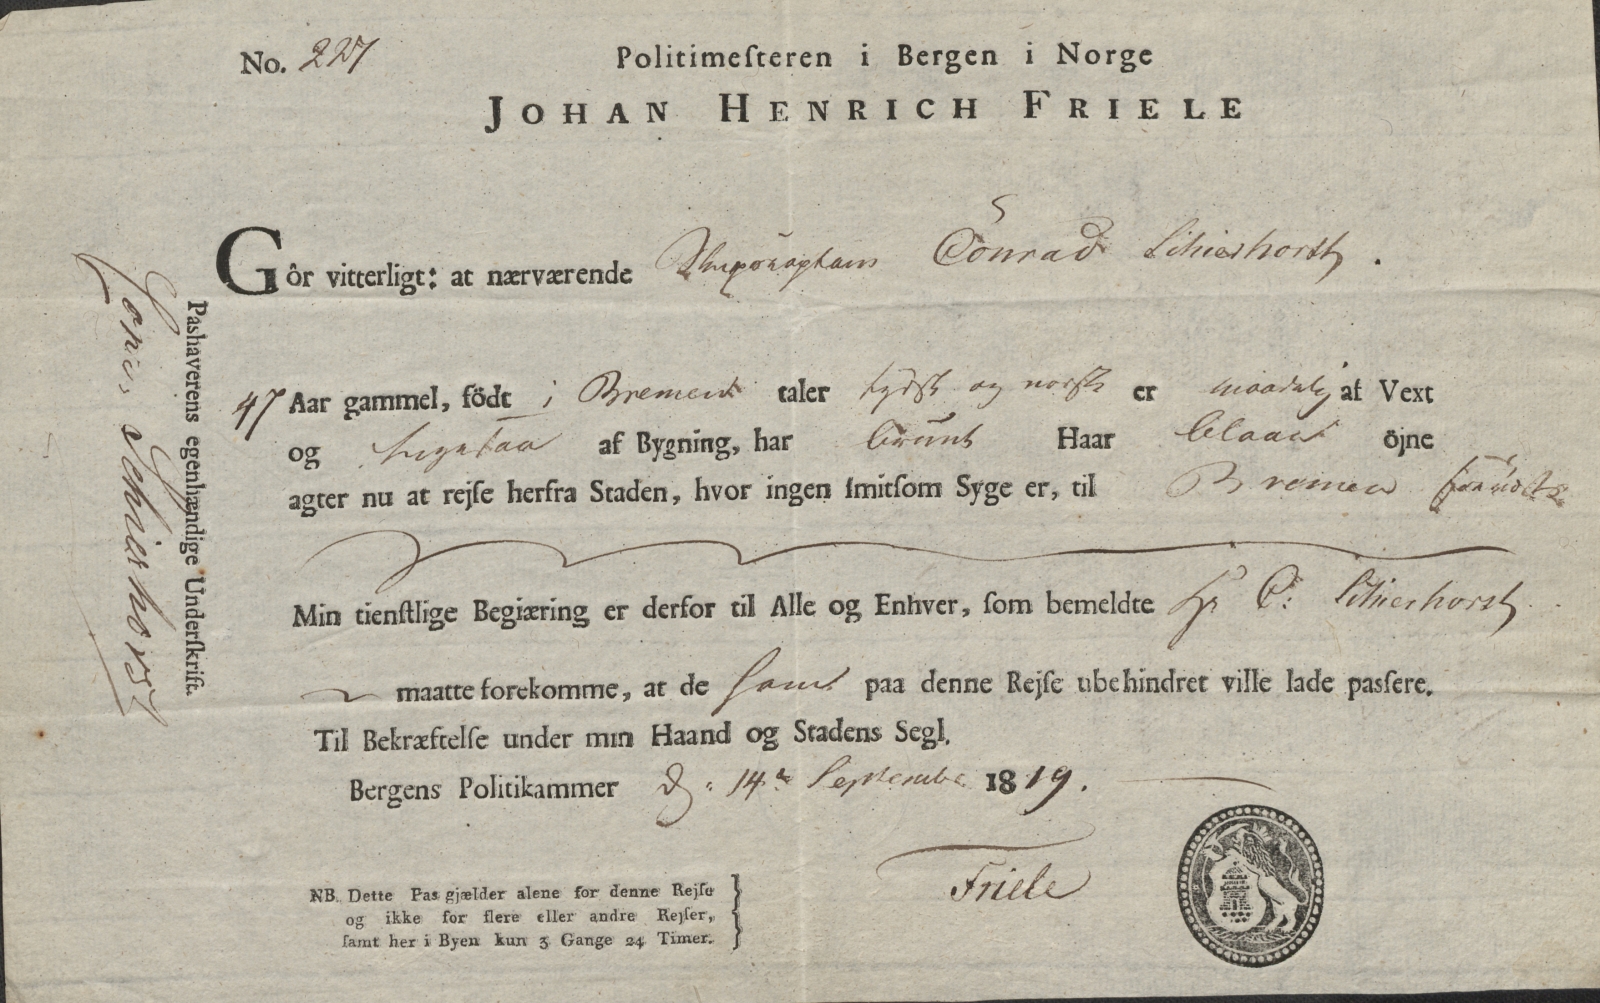 No. 227
Politimeſteren i Bergen i Norge
JOHAN HENRICH FRIELE
Gör vitterligt: at nærværende Conrad Schierhorst.
47 Aar gammel, födt i Bremen taler tydsk og norsk er maadelig af Vext
og af Bygning, har bruunt Haar blaae öjne
agter nu at rejſe herfra Staden, hvor ingen ſmitſom Syge er, til Bremen
Min tienſtlige Begiæring er derfor til Alle og Enhver, ſom bemeldte Hr C: Schierhorst
maatte forekomme, at de ham paa denne Rejſe ubehindret ville lade paſſere.
Til Bekræftelſe under min Haand og Stadens Segl.
Bergens Politikammer d: 14de September 1819.
Friele
NB. Dette Pas gjælder alene for denne Rejſe
og ikke for flere eller andre Rejſer,
ſamt her i Byen kun 3 Gange 24 Timer.
Pashaverens egenhændige Underſkrift.
Schierhorst